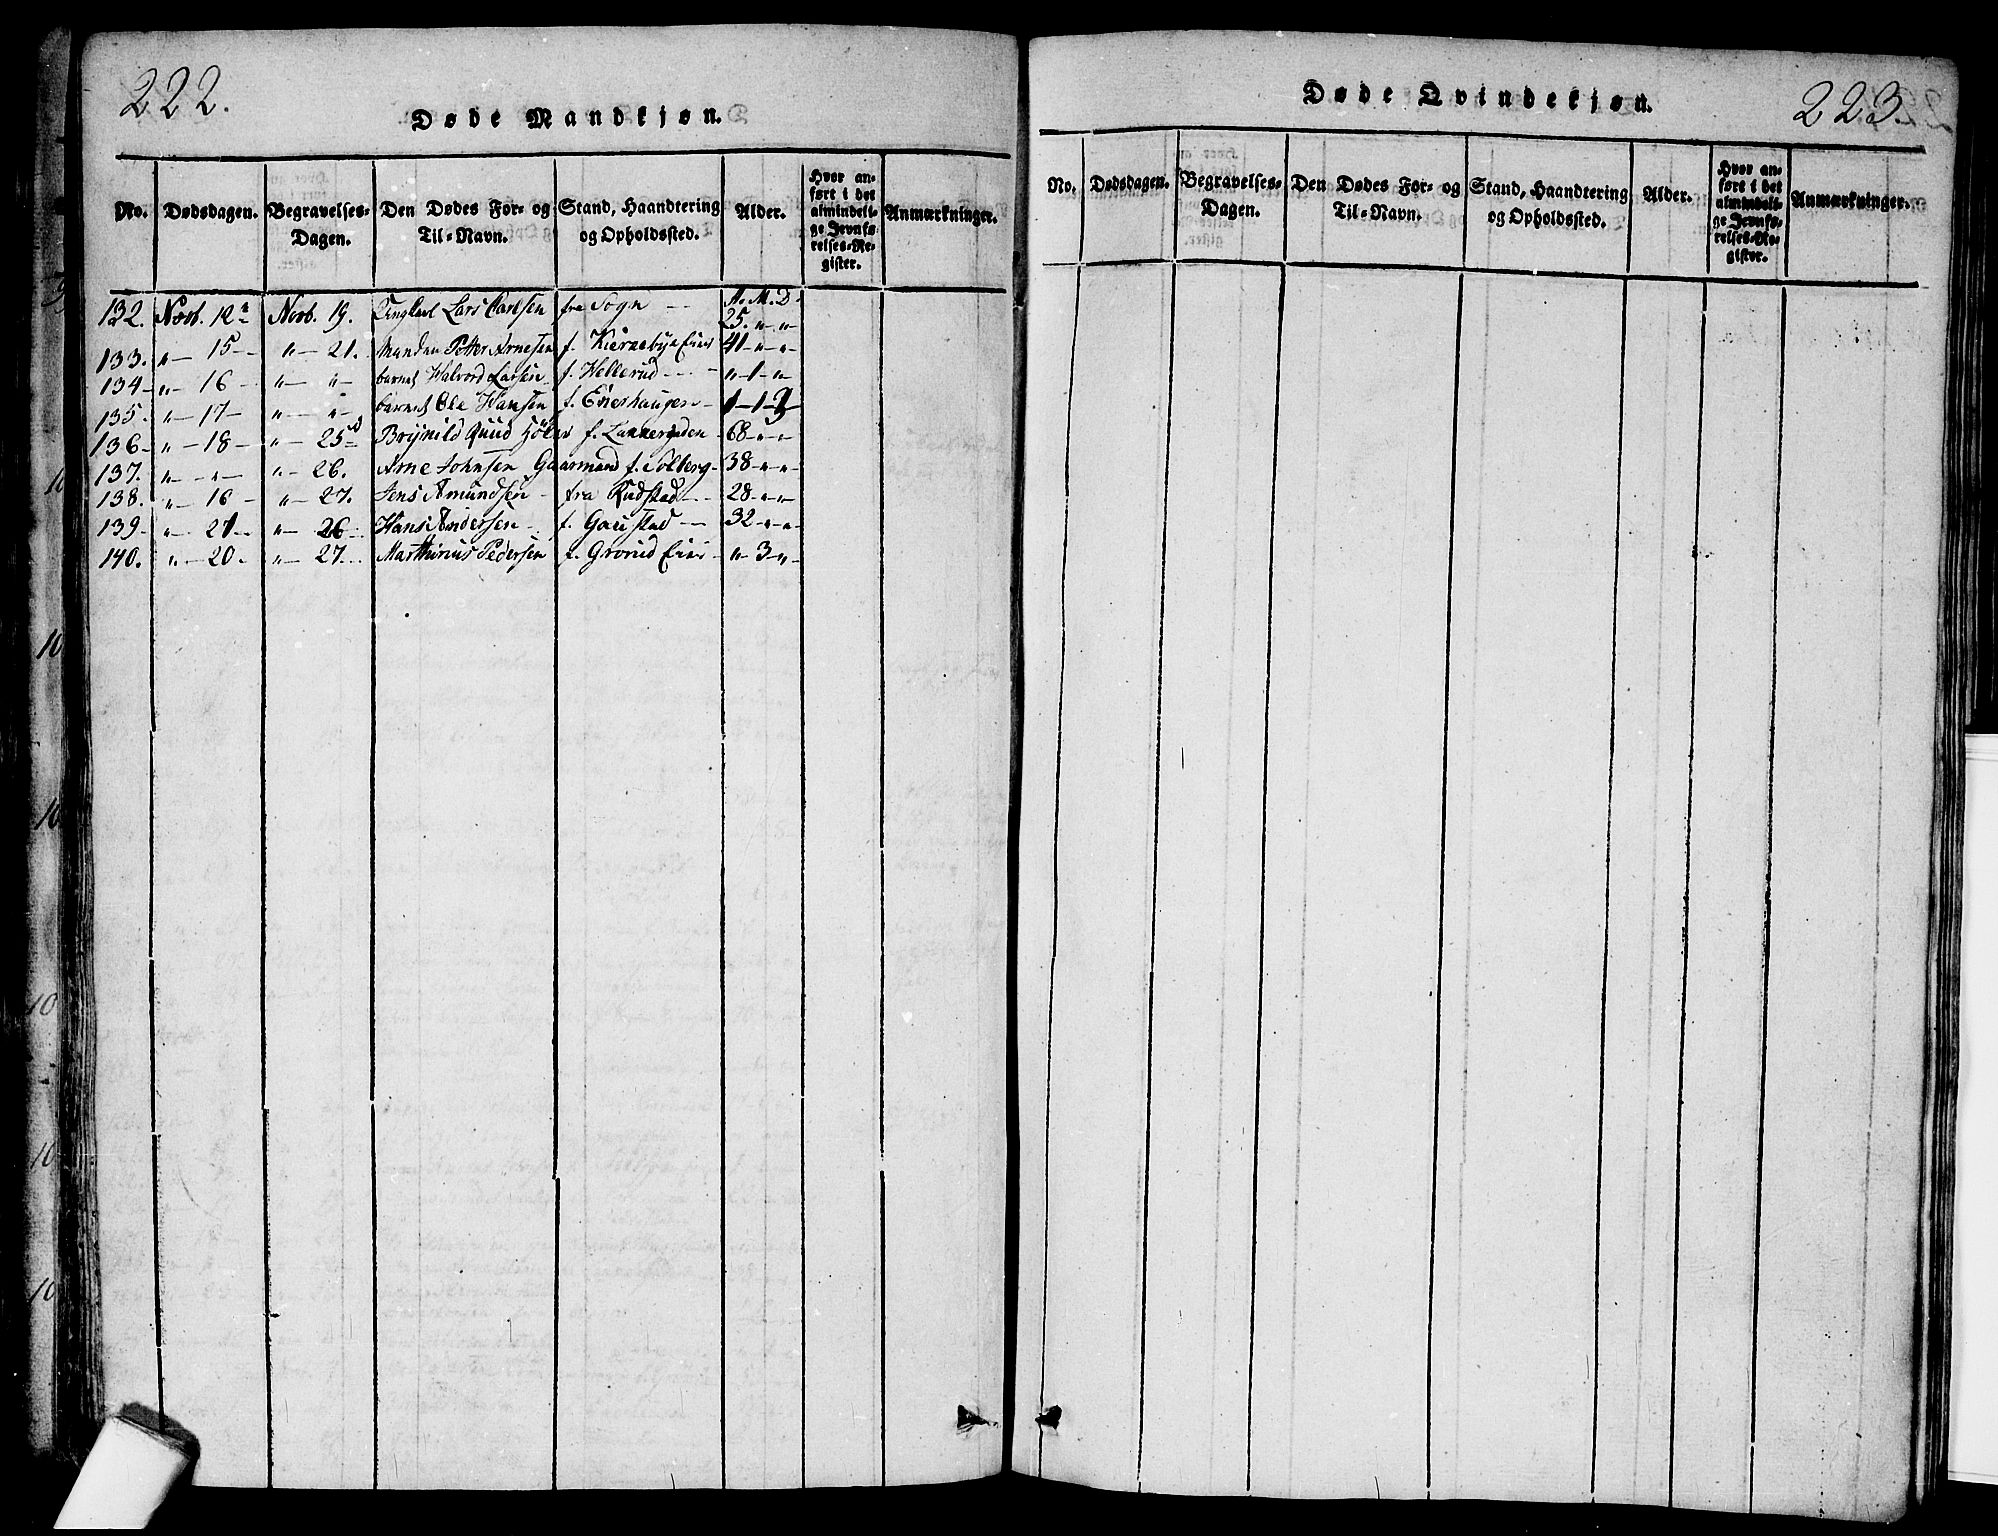 222.
Døde Mandkjøn.
No. Dødsdagen. Begravelses-Dagen. Den Dødes For- og Til-Navn. Stand, Haandtering og Opholdssted. Alder. Hvor anført i det almindelige Jevnførelses-Register. Anmærkninger.
A. M. D.
132. Novb. 12 Novb. 19. Ungkarl Lars Carlsen fra Sogn 25. „ „
133. „ 15 „ 21. Manden Petter Arnesen f. Eier 41 „ „
134 „ 16 „ „ barnet Halvord Larsen f. Hellerud „ 1 „
135. „ 17 „ „ barnet Ole Hansen f. 1 1
136 „ 18 „ 25 Brynild f. 68 „ „
137. „ „ „ 26. Arne Johnsen Gaarmand f. Solberg 38 „ „
138. „ 16 „ 27. Jens Amundsen fra Rudstad 28 „ „
139 „ 21 „ 26 Hans Andersen f. Gaustad 32 „ „
140. „ 20. „ 27. Marthinus Pedersen f. Grorud Eier „ 3 „
223.
Døde Qvindekjøn.
No. Dødsdagen. Begravelses-Dagen. Den Dødes For- og Til-Navn. Stand, Haandtering og Opholdssted. Alder. Hvor anført i det almindelige Jevnførelses-Register. Anmærkninger.